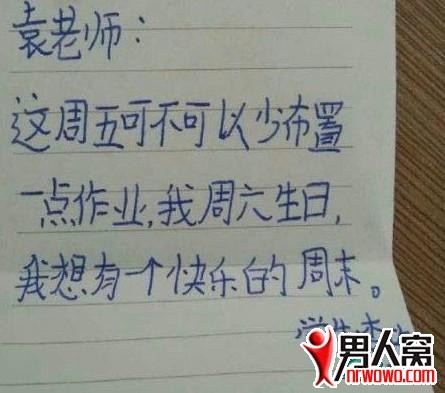 袁老师：
这周五可不可以少布置
一点作业，我周六生日，
我想有一个快乐的周末。
学生
男人窝
nrwowo.com